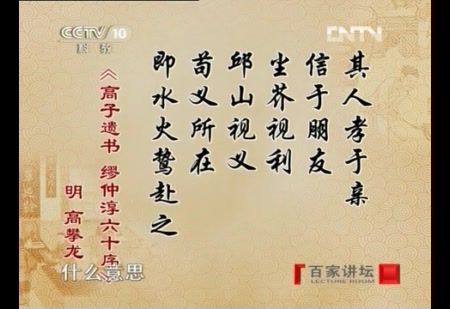 CCTV 10
科教
CNTV
其人孝于亲
信于朋友
尘芥视利
邱山视义
苟义所在
即水火鹜赴之
《高子遗书 缪仲淳六十序》
明 高攀龙
什么意思
百家讲坛
LECTURE ROOM